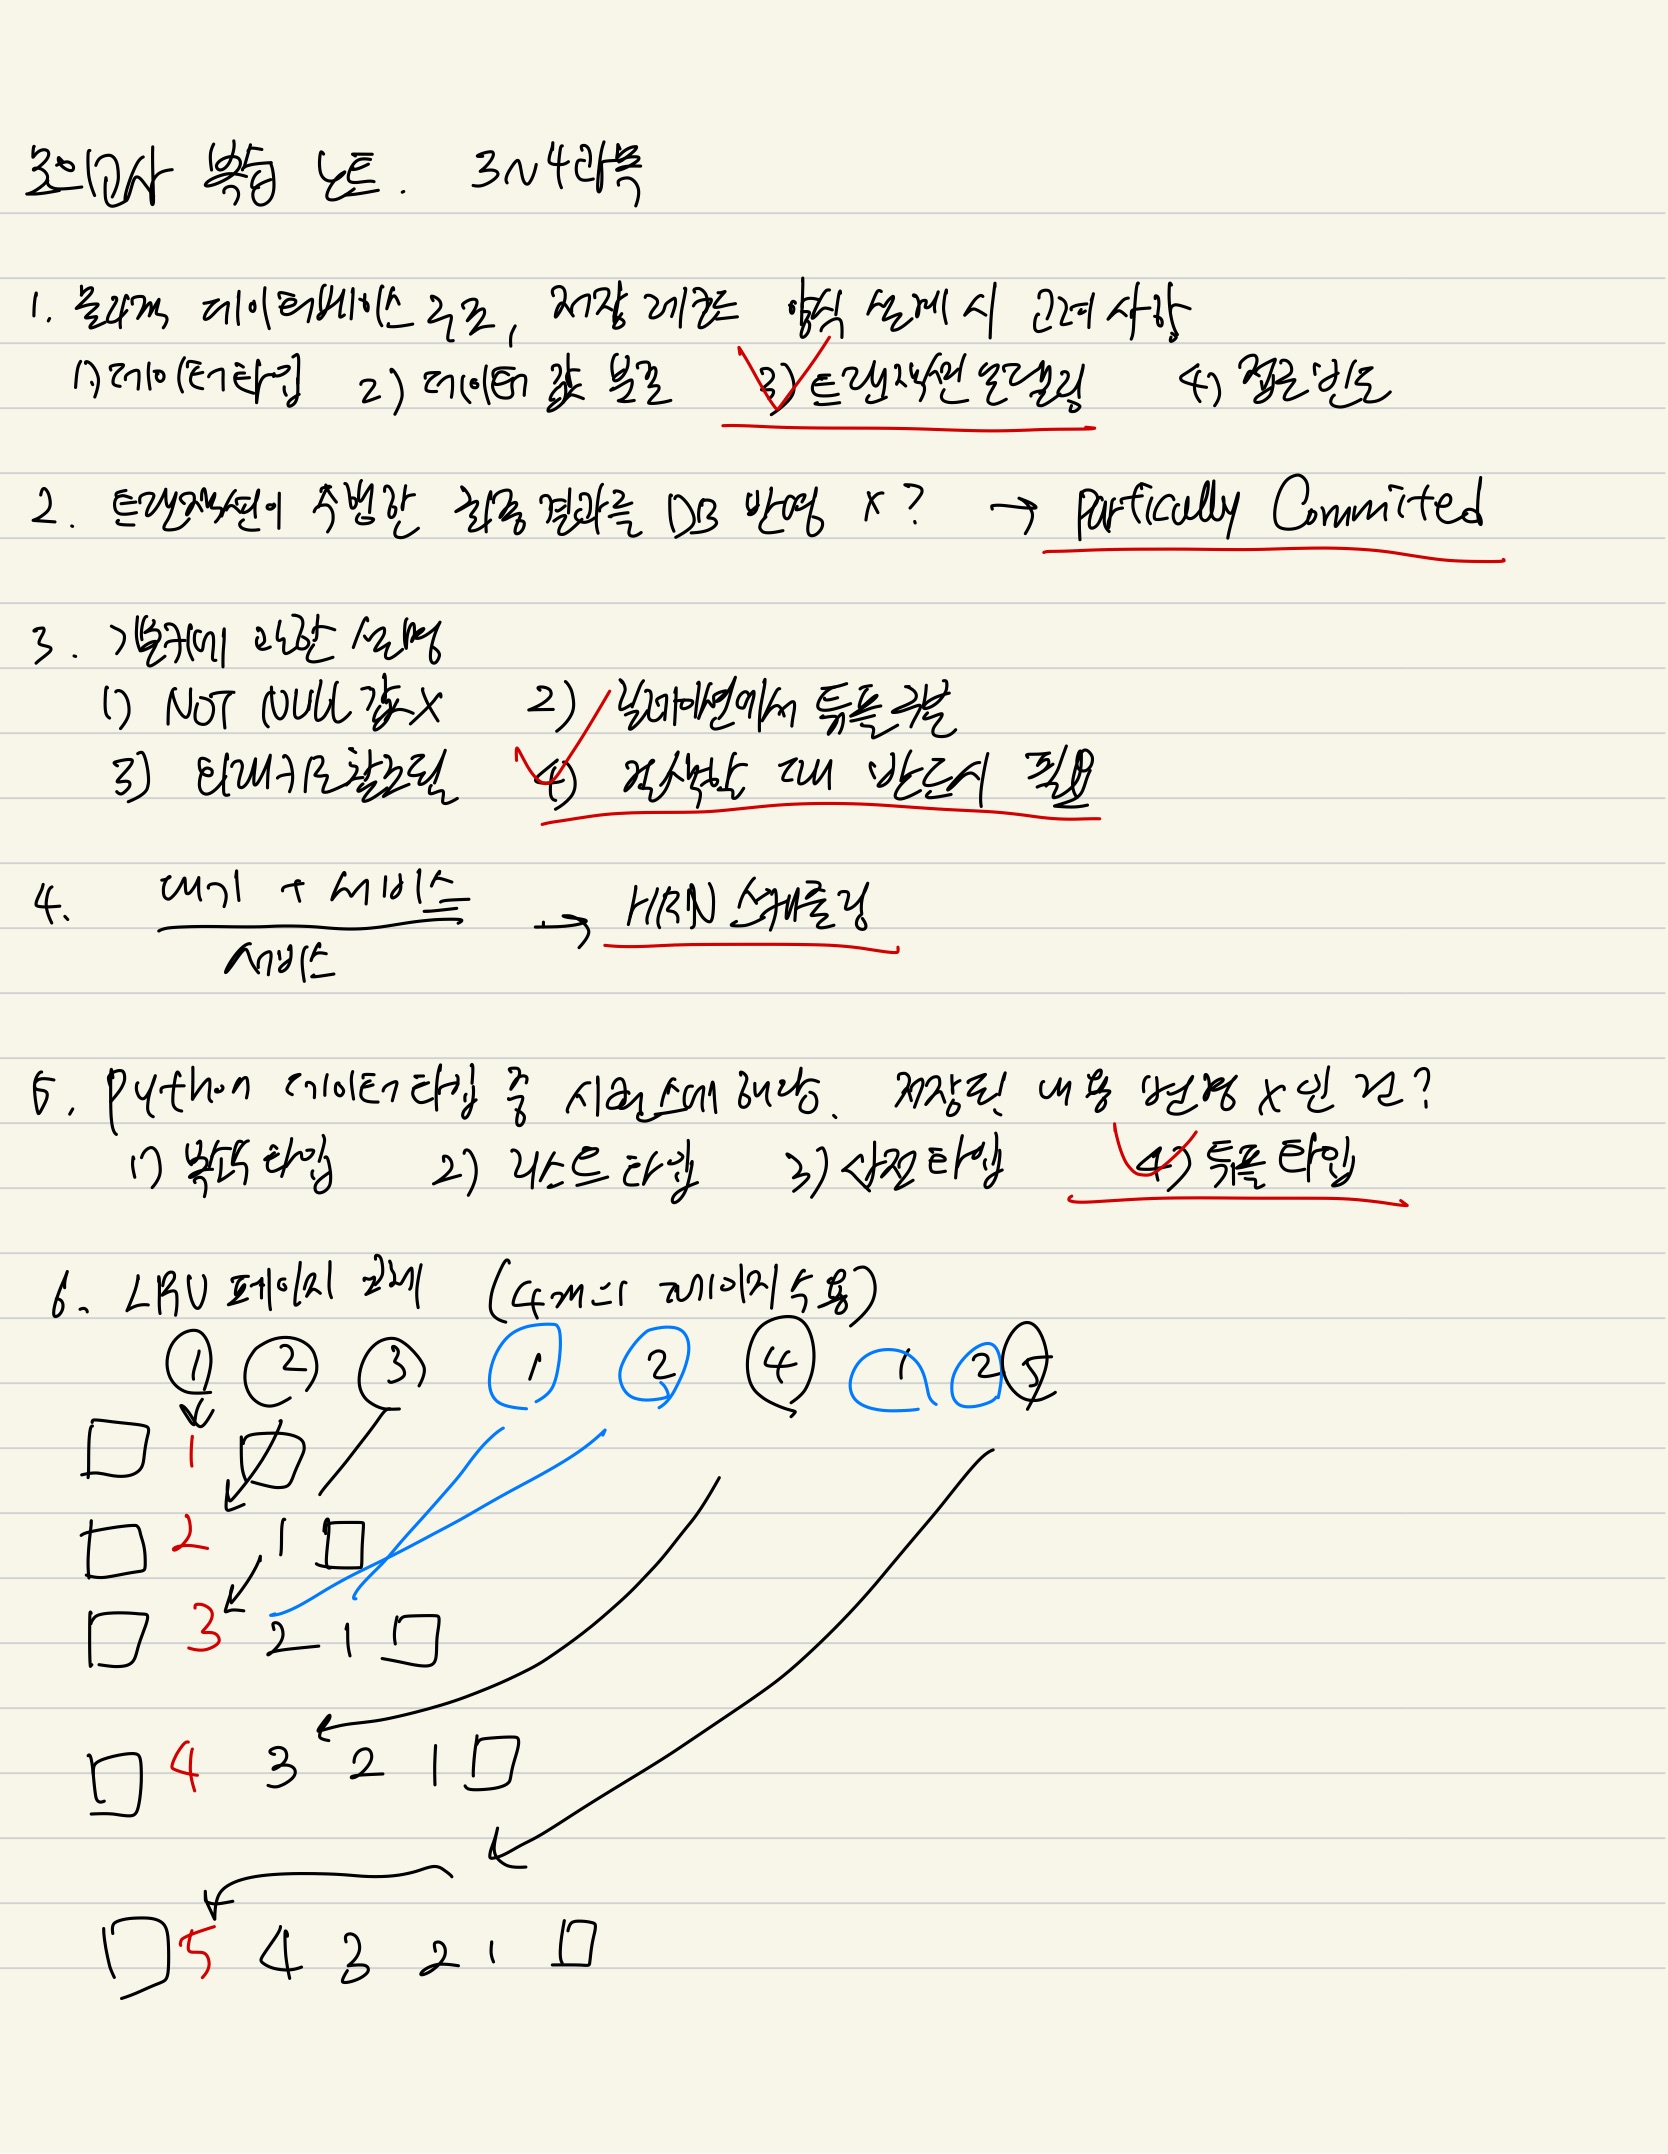 모의고사 복습 노트. 3~4과목
1. 물리적 데이터베이스 구조, 저장 레코드 양식 설계 시 고려 사항
1) 데이터 타입 2) 데이터 값 분포 3) 트랜잭션 모델링 4) 접근 빈도
2. 트랜잭션이 수행한 최종 결과를 DB 반영 X? → Partically Commited
3. 기본키에 관한 설명
1) NOT NULL 값 X 2) 릴레이션에서 튜플 구분
3) 외래키로 참조됨 4) 검색할 때 반드시 필요
4. 대기 + 서비스
서비스
→ HRN 스케줄링
5. Python 데이터 타입 중 시퀀스에 해당. 저장된 내용 변경 X인 건?
1) 복소수 타입 2) 리스트 타입 3) 사전 타입 4) 튜플 타입
6. LRU 페이지 교체 (4개의 페이지 수용)
1 2 3 1 2 4 1 2 5
1
2 1
3 2 1
4 3 2 1
5 4 3 2 1